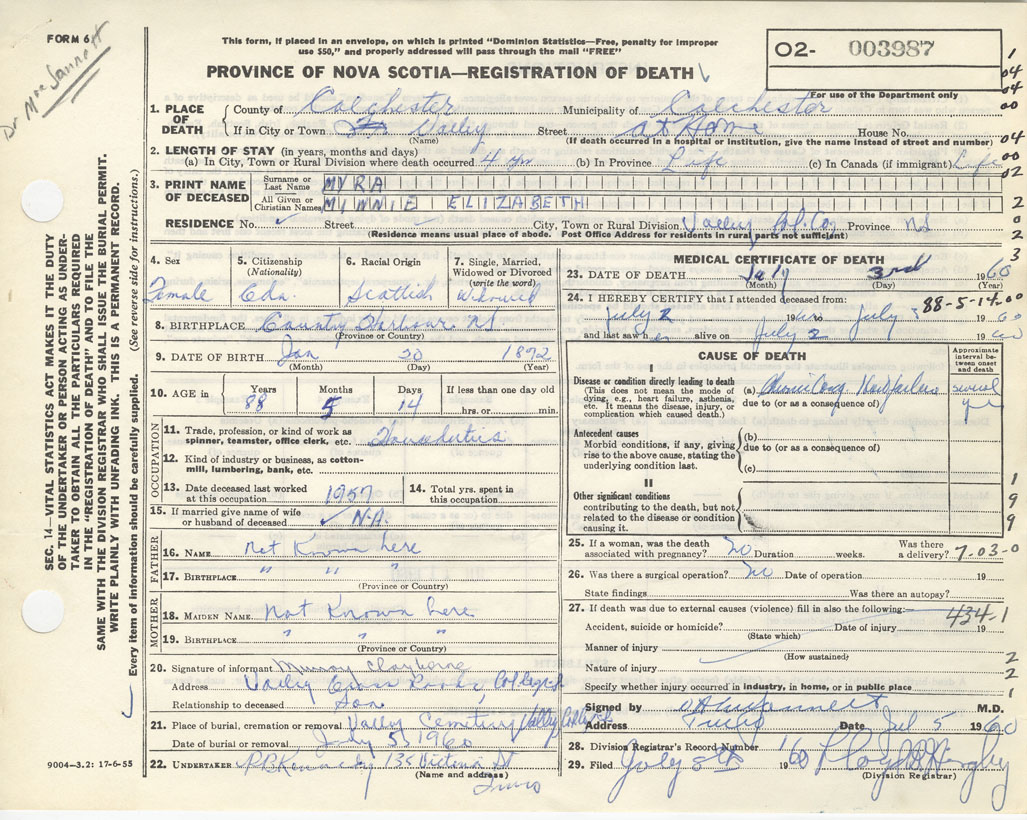 FORM 6
Dr Mac
This form, if placed in an envelope, on which is printed "Dominion Statistics—Free, penalty for improper
use $50," and properly addressed will pass through the mail "FREE"
O2- 003987
For use of the Department only
PROVINCE OF NOVA SCOTIA—REGISTRATION OF DEATH
1. PLACE OF DEATH County of Colchester Municipality of Colchester
If in City or Town Valley Street at Home House No.
(Name) (If death occurred in a hospital or institution, give the name instead of street and number)
2. LENGTH OF STAY (in years, months and days)
(a) In City, Town or Rural Division where death occurred 4 yrs (b) In Province Life (c) In Canada (if immigrant) Life
3. PRINT NAME OF DECEASED Surname or Last Name MYRA
All Given or Christian Names MINNIE ELIZABETH
RESIDENCE No. Street City, Town or Rural Division Valley Col. Co. Province NS
(Residence means usual place of abode. Post Office Address for residents in rural parts not sufficient)
4. Sex Female
5. Citizenship (Nationality) Cda.
6. Racial Origin Scottish
7. Single, Married, Widowed or Divorced (write the word) Widowed
8. BIRTHPLACE Country Harbour NS
(Province or Country)
9. DATE OF BIRTH Jan 20 1872
(Month) (Day) (Year)
10. AGE in Years 88 Months 5 Days 14 If less than one day old hrs. or min.
OCCUPATION
11. Trade, profession, or kind of work as spinner, teamster, office clerk, etc. Housduties
12. Kind of industry or business, as cotton-mill, lumbering, bank, etc.
13. Date deceased last worked at this occupation 1957
14. Total yrs. spent in this occupation
15. If married give name of wife or husband of deceased N.A.
FATHER
16. NAME Not Known here
17. BIRTHPLACE " " "
(Province or Country)
MOTHER
18. MAIDEN NAME Not Known here
19. BIRTHPLACE " " "
(Province or Country)
20. Signature of informant Murray Clayborne
Address Valley Cross Roads, Col
Relationship to deceased Son
21. Place of burial, cremation or removal Valley Cemetery Valley
Date of burial or removal July 5, 1960
22. UNDERTAKER 135 Victoria St
(Name and address) Truro
MEDICAL CERTIFICATE OF DEATH
23. DATE OF DEATH July 3rd 1960
(Month) (Day) (Year)
24. I HEREBY CERTIFY that I attended deceased from: 88-5-14-00
July 2 1960 to July 3 1960
and last saw her alive on July 2 1960
CAUSE OF DEATH
Approximate interval between onset and death
I
Disease or condition directly leading to death
(This does not mean the mode of dying, e.g., heart failure, asthenia, etc. It means the disease, injury, or complication which caused death.)
(a) Chronic Cong. Heart failure several yrs
due to (or as a consequence of)
Antecedent causes
Morbid conditions, if any, giving rise to the above cause, stating the underlying condition last.
(b)
due to (or as a consequence of)
(c)
II
Other significant conditions contributing to the death, but not related to the disease or condition causing it.
25. If a woman, was the death associated with pregnancy? No Duration weeks. Was there a delivery? 7-03-0
26. Was there a surgical operation? No Date of operation 19
State findings Was there an autopsy?
27. If death was due to external causes (violence) fill in also the following:—
434-1
Accident, suicide or homicide? Date of injury 19
(State which)
Manner of injury
(How sustained)
Nature of injury
Specify whether injury occurred in industry, in home, or in public place
Signed by M.D.
Address Truro Date Jul 5 1960
28. Division Registrar's Record Number
29. Filed July 8th 1960
(Division Registrar)
SEC. 14—VITAL STATISTICS ACT MAKES IT THE DUTY
OF THE UNDERTAKER OR PERSON ACTING AS UNDER-
TAKER TO OBTAIN ALL THE PARTICULARS REQUIRED
IN THE "REGISTRATION OF DEATH" AND TO FILE THE
SAME WITH THE DIVISION REGISTRAR WHO SHALL ISSUE THE BURIAL PERMIT.
WRITE PLAINLY WITH UNFADING INK. THIS IS A PERMANENT RECORD.
Every item of information should be carefully supplied. (See reverse side for instructions.)
9004—3.2: 17-6-55
1
04
04
00
04
02
2
0
2
3
1
9
9
1
2
2
1